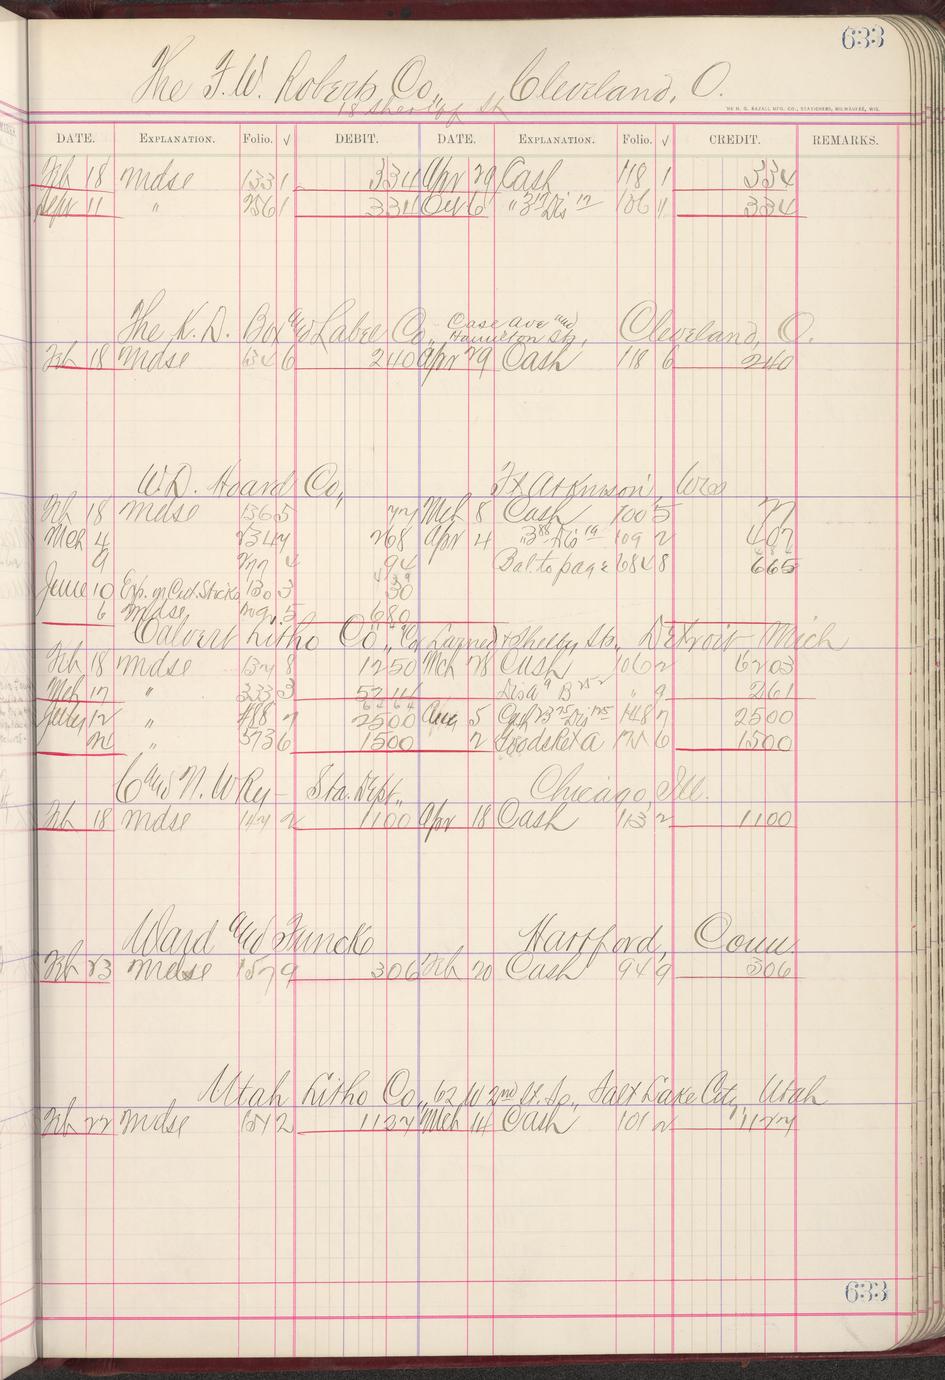 633
The F.W. Roberts Co., Cleveland, O.
18 St
THE H. G. RAZALL MFG. CO., STATIONERS, MILWAUKEE, WIS.
DATE. EXPLANATION. Folio. √ DEBIT. DATE. EXPLANATION. Folio. √ CREDIT. REMARKS.
Feb 18 Mdse 133 1 334 Apr 29 Cash 118 1 334
Sept 11 " 256 1 334 Oct 6 " Dis 106 334
The K.D. Box and Label Co., Case Ave and Hamilton Sts., Cleveland, O.
Feb 18 Mdse 6 240 Apr 29 Cash 118 6 240
W.D. Hoard Co., Ft Atkinson, Wis
Feb 18 Mdse 136 5 77 Mch 8 Cash 100 5 77
Mch 4 234 7 268 Apr 4 Dis 109 2 407
9 277 4 94 Bal. to page 684 8 665
June 10 Exp. on Cut. Sticks 130 3 30
6 Mdse 5 680
Calvert Litho Co., Cor Larned & Shelby Sts., Detroit Mich
Feb 18 Mdse 137 8 1250 Mch 28 Cash 106 2 6203
Mch 17 " 333 3 5214 Dis " 9 261
July 12 " 488 7 2500 Aug 5 Cash Dis 148 7 2500
" 573 6 1500 2 Goods Ret 6 1500
C and N.W Ry- Sta. Dept., Chicago, Ill.
Feb 18 Mdse 147 2 1100 Apr 18 Cash 113 2 1100
Ward and Funck Hartford, Conn.
Feb 23 Mdse 157 9 306 Feb 20 Cash 94 9 306
Utah Litho Co., 62 W 2nd St. So., Salt Lake City, Utah
Feb 22 Mdse 157 2 1127 Mch 14 Cash 101 2 1127
633